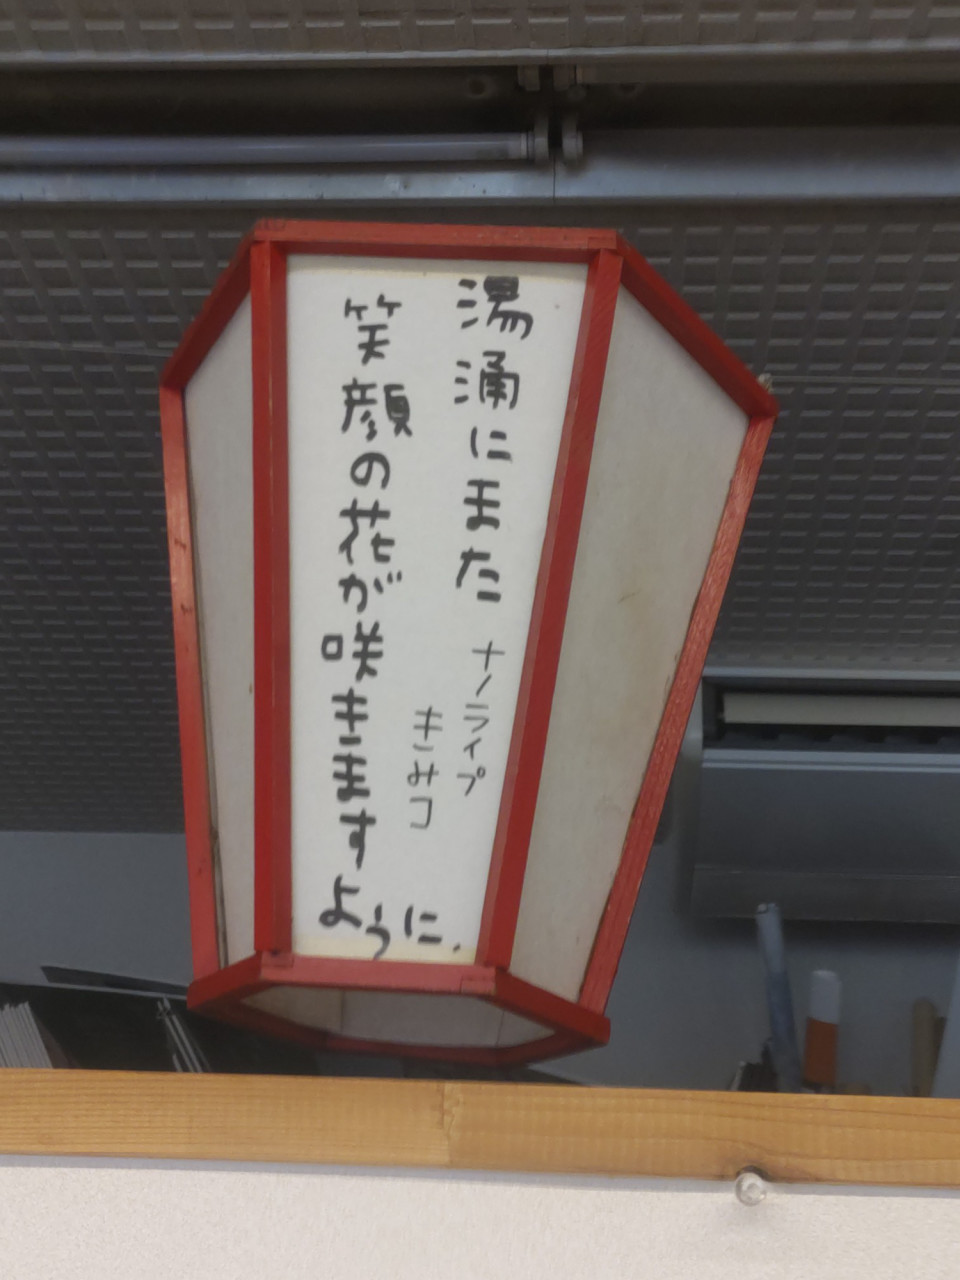 湯涌にまた
笑顔の花が咲きます
ように.
ナノライプ
きみコ